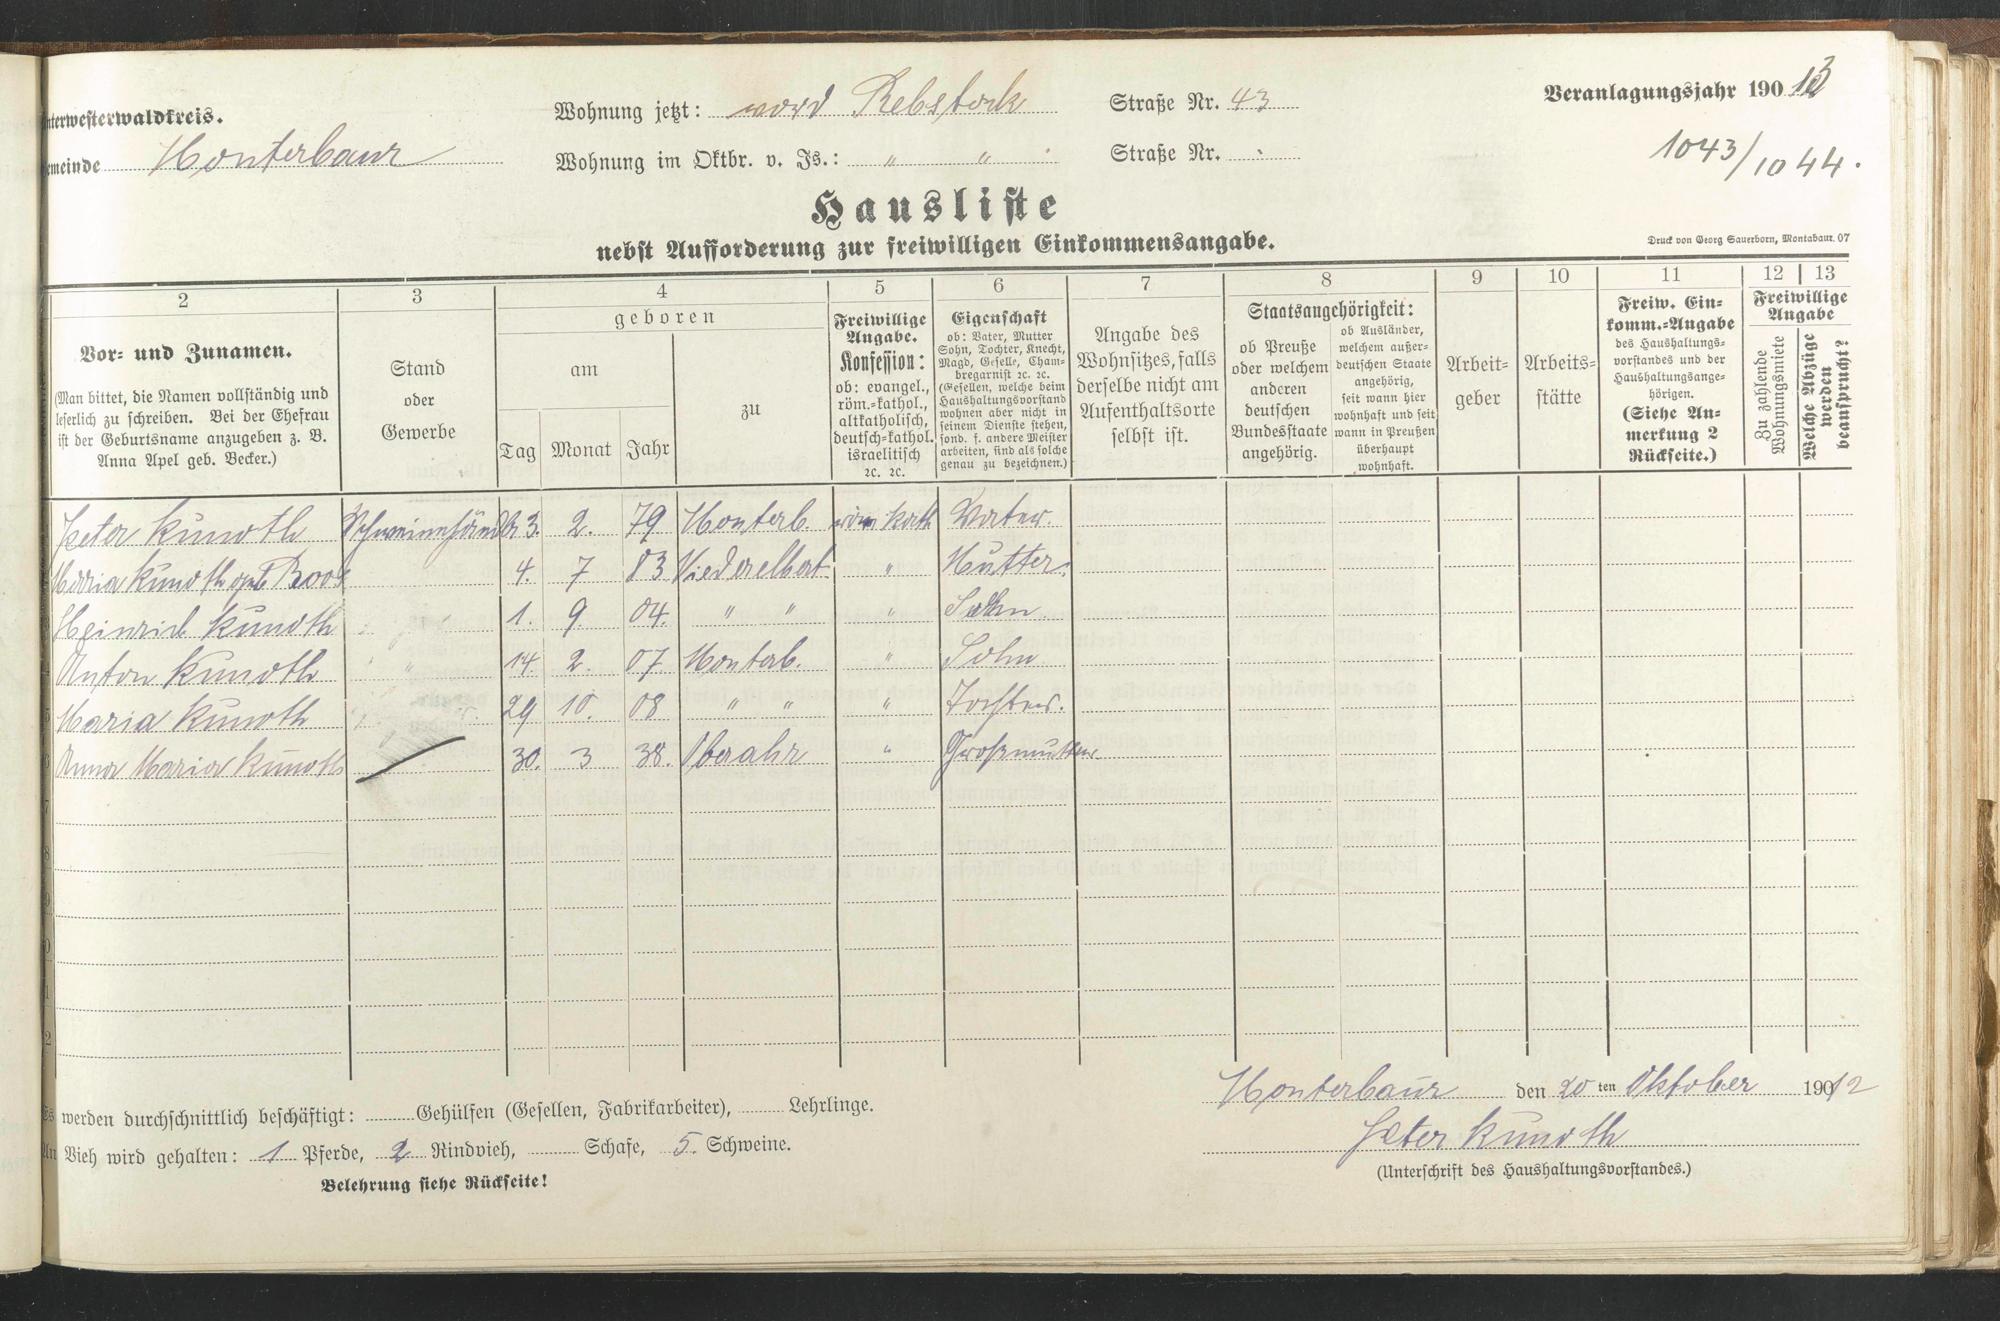 Unterwesterwaldkreis.
Gemeinde Montabaur
Wohnung jetzt: vord Rebstock Straße Nr. 43
Wohnung im Oktbr. v. Js.: " " Straße Nr.
Veranlagungsjahr 190 13
1043/1044.
Hausliste
nebst Aufforderung zur freiwilligen Einkommensangabe.
Druck von Georg Sauerborn, Montabaur. 07
2 3 4 5 6 7 8 9 10 11 12 13
Vor- und Zunamen.
(Man bittet, die Namen vollständig und
leserlich zu schreiben. Bei der Ehefrau
ist der Geburtsname anzugeben z. B.
Anna Apel geb. Becker.)
Stand
oder
Gewerbe
geboren
am
Tag Monat Jahr
zu
Freiwillige
Angabe.
Konfession:
ob: evangel.,
röm.-kathol.,
altkatholisch,
deutsch-kathol.
israelitisch
ꝛc. ꝛc.
Eigenschaft
ob: Vater, Mutter
Sohn, Tochter, Knecht,
Magd, Geselle, Cham-
bregarnist ꝛc. ꝛc.
(Gesellen, welche beim
Haushaltungsvorstand
wohnen aber nicht in
seinem Dienste stehen,
sond. f. andere Meister
arbeiten, sind als solche
genau zu bezeichnen.)
Angabe des
Wohnsitzes, falls
derselbe nicht am
Aufenthaltsorte
selbst ist.
Staatsangehörigkeit:
ob Preuße
oder welchem
anderen
deutschen
Bundesstaate
angehörig.
ob Ausländer,
welchem außer-
deutschen Staate
angehörig,
seit wann hier
wohnhaft und seit
wann in Preußen
überhaupt
wohnhaft.
Arbeit-
geber
Arbeits-
stätte
Freiw. Ein-
komm.-Angabe
des Haushaltungs-
vorstandes und der
Haushaltungsange-
hörigen.
(Siehe An-
merkung 2
Rückseite.)
Freiwillige
Angabe
Zu zahlende
Wohnungsmiete
Welche Abzüge
werden
beansprucht?
Peter Kunoth Schweinehändlr 3. 2. 79 Montab. röm kath Vater.
Maria Kunoth geb Roos 4. 7 83 Niederelbert " Mutter.
Heinrich Kunoth 1. 9 04. " " " Sohn
Anton Kunoth " 14. 2. 07 Montab. " Sohn
Maria Kunoth 29 10. 08 " " " Tochter.
Anna Maria Kunoth 30. 3 38. Oberahr " Großmutter
7
8
9
Es werden durchschnittlich beschäftigt: Gehülfen (Gesellen, Fabrikarbeiter), Lehrlinge.
An Vieh wird gehalten: 1 Pferde, 2 Rindvieh, Schafe, 5. Schweine.
Belehrung siehe Rückseite!
Montabaur den 20 ten Oktober 1912
Peter Kunoth
(Unterschrift des Haushaltungsvorstandes.)